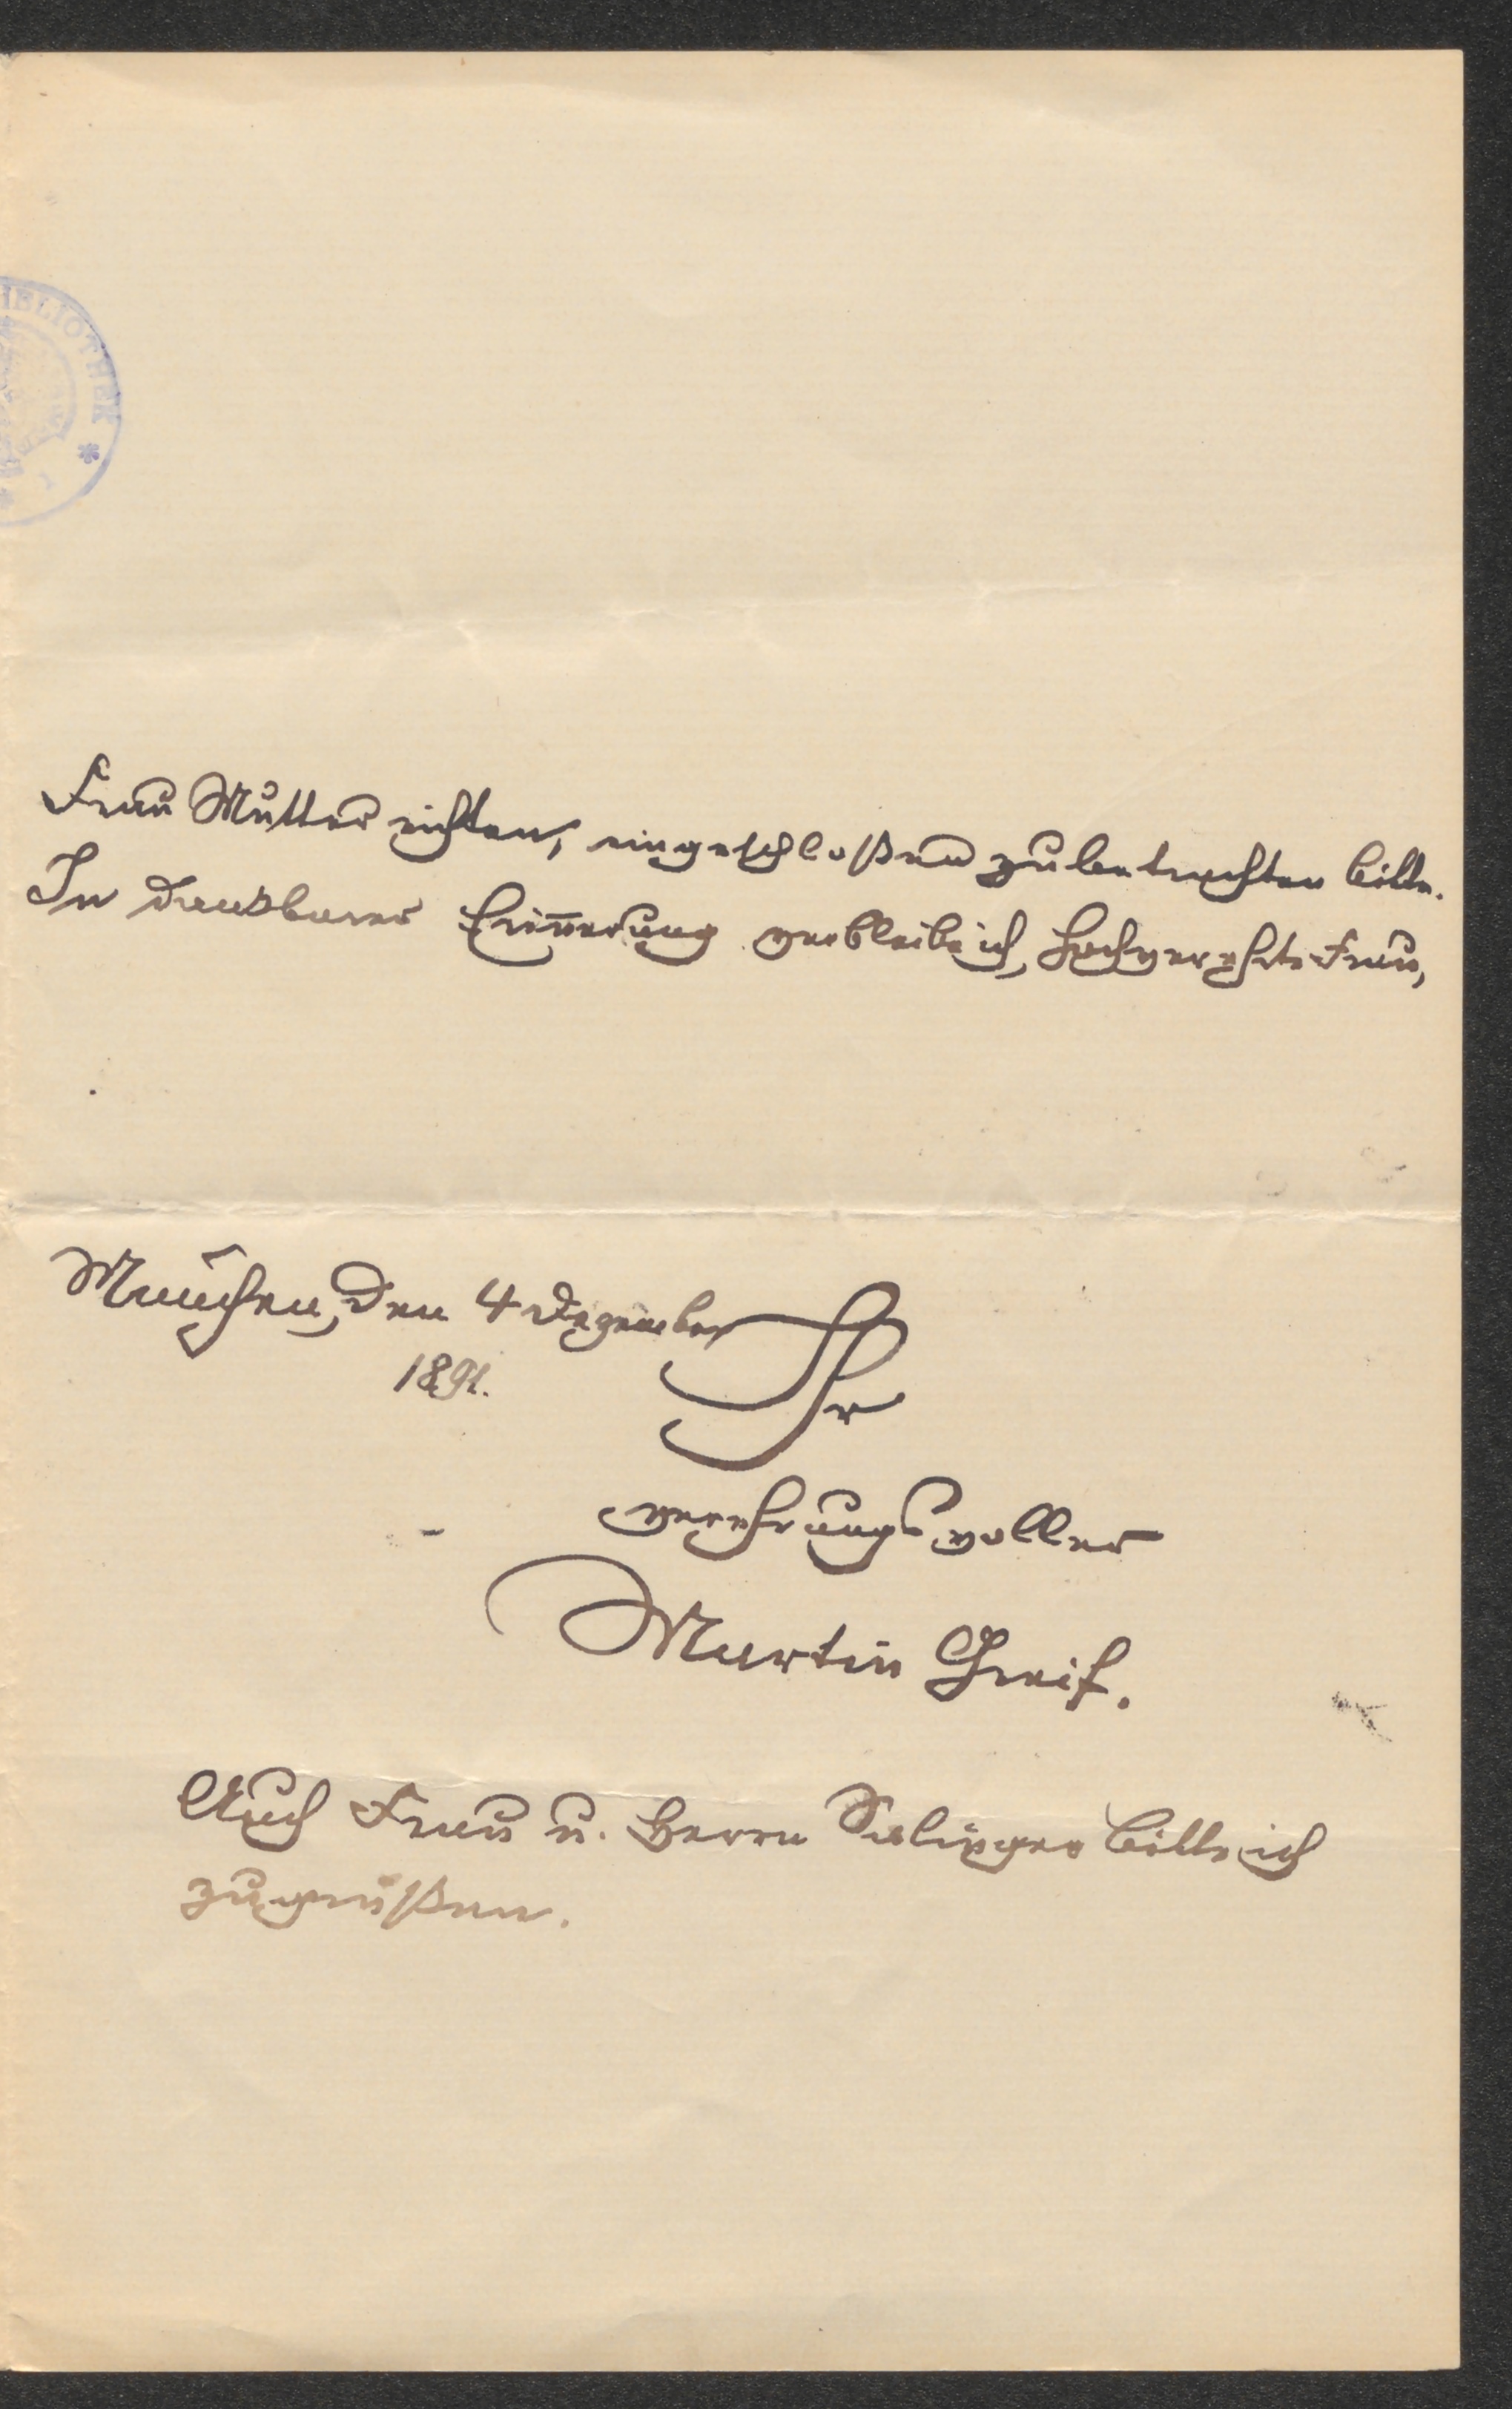 BIBLIOTHEK
Frau Mutter richten, eingeschloßen zu betrachten bitte.
In dankbarer Erin̄erung verbleibe ich, hochverehrte Frau,
München, den 4 Dezember
1891.
Ihr
verehrungsvoller
Martin Greif.
Auch Frau u. Herrn Salinger bitte ich
zu grüßen.